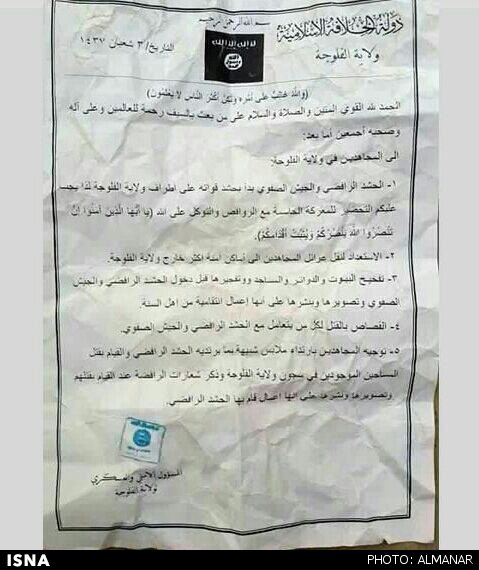 بسم الله الرحمن الرحيم
دولة الخلافة الإسلامية
ولاية الفلوجة
التاريخ / ٣ شعبان ١٤٣٧
لا إله إلا الله
(والله غالب على أمره ولكن أكثر الناس لا يعلمون)
الحمد لله القوي المتين والصلاة والسلام على من بعث بالسيف رحمة للعالمين وعلى آله
وصحبه أجمعين أما بعد:
الى المجاهدين في ولاية الفلوجة:
١- الحشد الرافضي والجيش الصفوي بدأ بحشد قواته على اطراف ولاية الفلوجة لذا يجب
عليكم التحضير للمعركة الحاسمة مع الروافض والتوكل على الله (يا أَيُّهَا الَّذِينَ آمَنُوا إِنْ
تَنْصُرُوا اللَّهَ يَنْصُرْكُمْ وَيُثَبِّتْ أَقْدَامَكُمْ).
٢- الاستعداد لنقل عوائل المجاهدين الى أماكن امنة اكثر خارج ولاية الفلوجة.
٣- تفخيخ البيوت والدوائر والمساجد وتفجيرها قبل دخول الحشد الرافضي والجيش
الصفوي وتصويرها ونشرها على انها إعمال انتقامية من اهل السنة.
٤- القصاص بالقتل لكل من يتعامل مع الحشد الرافضي والجيش الصفوي.
٥- توجيه المجاهدين بارتداء ملابس شبيهة بما يرتديه الحشد الرافضي والقيام بقتل
المساجين الموجودين في سجون ولاية الفلوجة وذكر شعارات الرافضة عند القيام بقتلهم
وتصويرها ونشرها على انها اعمال قام بها الحشد الرافضي.
المسؤول الأمني والعسكري
لولاية الفلوجة
ISNA
PHOTO: ALMANAR